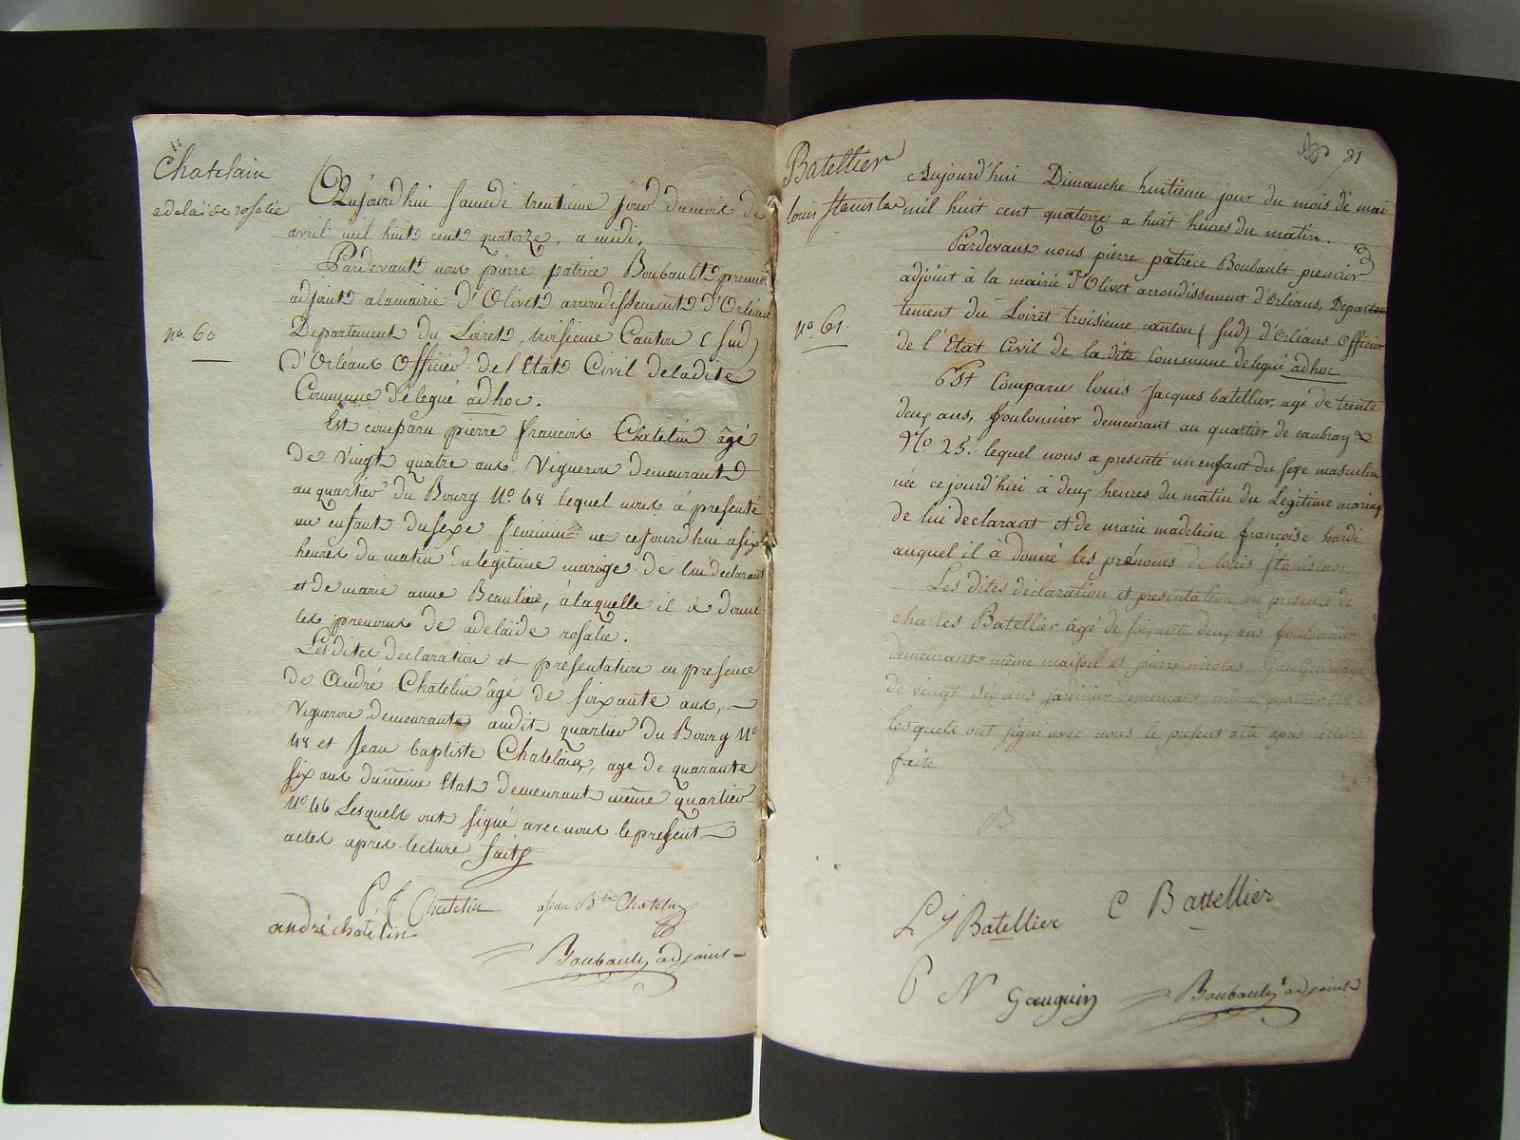 Chatelain
adelaide rosalie
Aujourd'hui samedi trentieme jour du mois de
avril mil huit cent quatorze, a midi.
Pardevant nous pierre patrice Boubault premier
adjoint a la mairie d'Olivet arrondissement d'Orléans
no. 60
Departement du Loiret, troisieme Canton (sud)
d'Orléans Officier de l'Etat Civil de la dite
Commune délegué ad hoc.
Est comparu pierre francois Chatelin âgé
de vingt quatre ans Vigneron demeurant
au quartier du Bourg No. 48 lequel nous à presenté
un enfant du sexe feminin né ce jourd'hui a six
heures du matin du légitime mariage de lui déclarant
et de marie anne Beaulieu, à laquelle il à donné
les prenoms de adelaide rosalie.
Les dites declaration et presentation en presence
de André Chatelin âgé de soixante ans,
Vigneron demeurant audit quartier du Bourg No
48 et Jean baptiste Chatelain, age de quarante
six ans du même Etat demeurant même quartier
No. 46 Lesquels ont signé avec nous le present
actes apres lecture faite
P f Chatelin
jean Bte Chatelin
andré chatelin
Boubault adjoint
31
Batellier
louis stanislas
Aujourd'hui Dimanche huitieme jour du mois de mai
mil huit cent quatorze a huit heures du matin.
Pardevant nous pierre patrice Boubault premier
adjoint à la mairie d'Olivet arrondissement d'Orléans, Depar
no. 61
tement du Loiret troisieme canton (sud) d'Orléans Officier
de l'Etat Civil de la dite Commune delegué ad hoc
Est Comparu louis Jacques batellier, agé de trente
deux ans, foulonnier demeurant au quartier de
No 25. lequel nous a presenté un enfant du sexe masculin
née ce jourd'hui à deux heures du matin du Légitime mariage
de lui declarant et de marie madeleine francoise hardi
auquel il à donné les prénoms de louis stanislas.
Les dites déclaration et presentation en presence de
charles Batellier âgé de soixante deux ans foulonnier
demeurant même maison et pierre nicolas Gauguin
de vingt six ans demeurant même quartier
lesquels ont signé avec nous le present acte apres lecture
faite
L J Batellier
C Batellier
P N Gauguin
Boubault adjoint